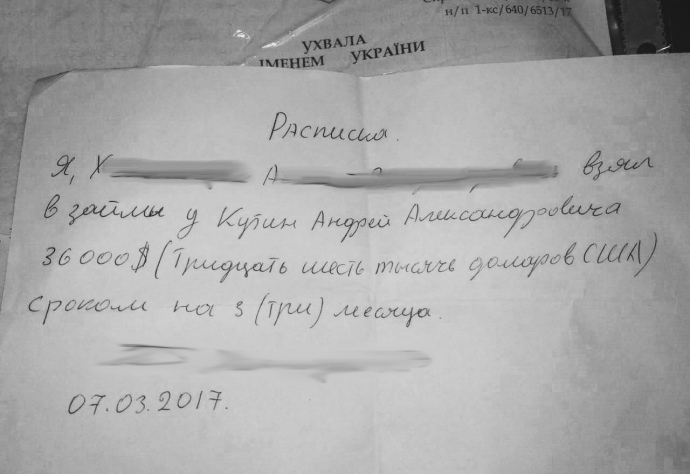 н/п 1-кс/640/6513/17
УХВАЛА
ІМЕНЕМ УКРАЇНИ
Расписка.
Я, Х А взял
в займы у Кутин Андрей Александровича
36000$ (Тридцать шесть тысяче доларов США)
сроком на 3 (три) месяца.
07.03.2017.